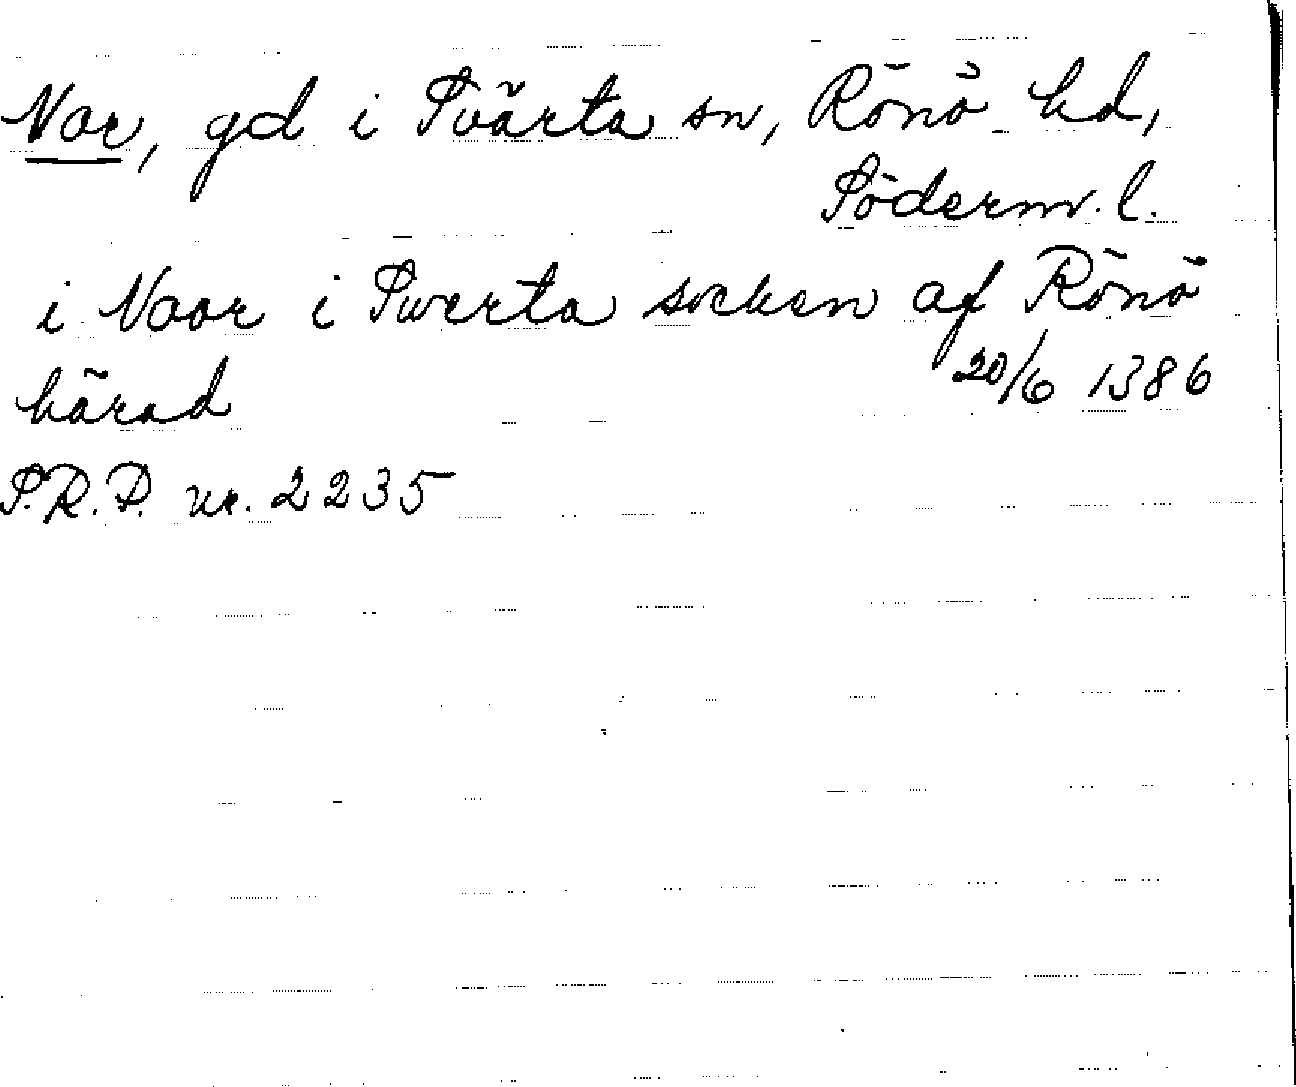 Nor, gd i Svärta sn, Rönö hd,
Söderm. l.
i Noor i Swerta socken af Rönö
härad 20/6 1386
S.R.P. nr. 2235